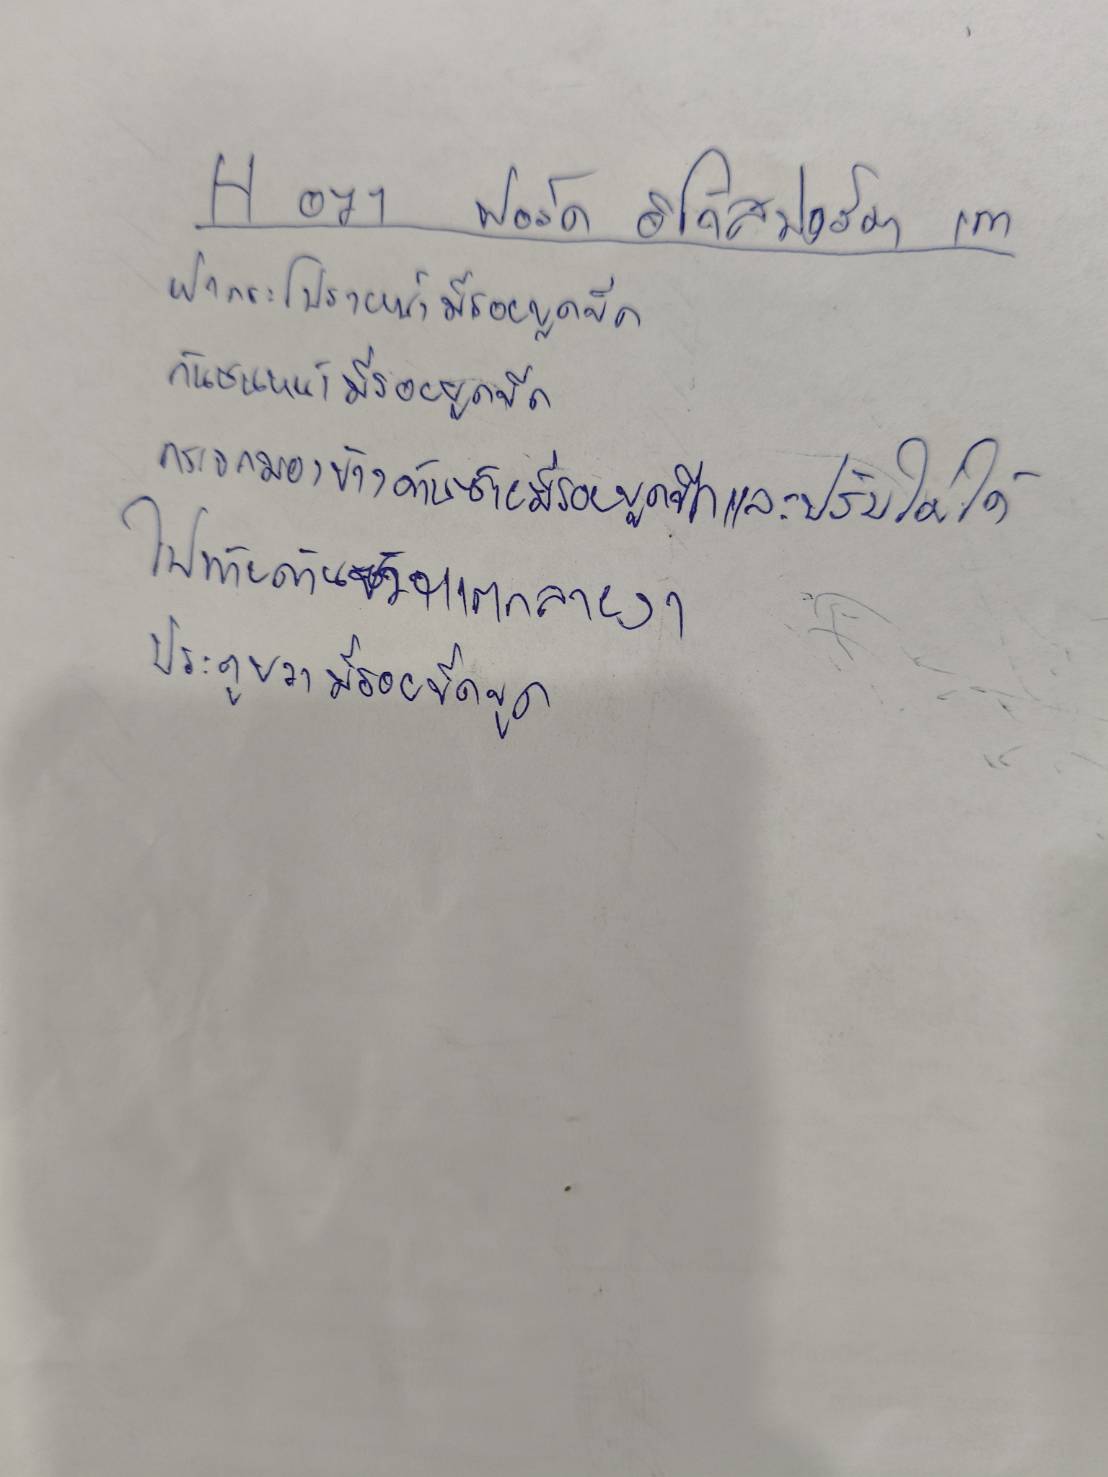 H ฟอร์ด อีโค่สปอร์ต เทา
ฝากระโปรงหน้ามีรอยขูดขีด
กันชนหน้ามีรอยขูดขีด
กระจกมองข้างด้านซ้ายมีรอยขูดขีดและปรับไม่ได้
ไฟท้ายด้านขวาแตกลายงา
ประตูขวามีรอยขีดขูด